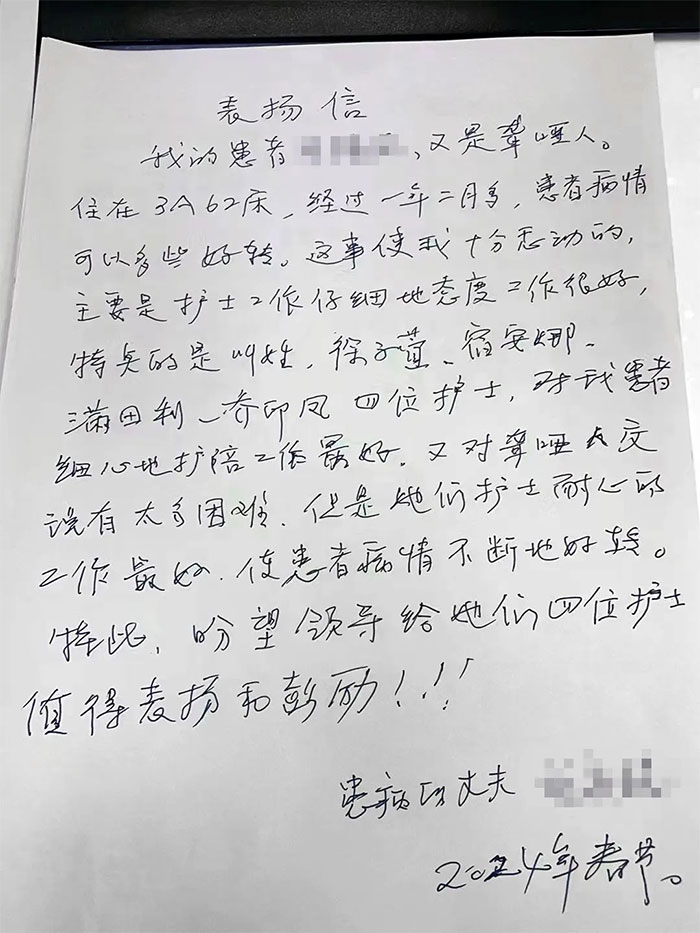 表扬信
我的患者，又是聋哑人。
住在3A62床，经过一年二月多，患者病情
可以多些好转。这事使我十分感动的，
主要是护士工作仔细地态度工作很好，
特别的是叫姓，徐子萱、宿安娜、
满田利、乔印凤四位护士，对我患者
细心地护陪工作最好，又对聋哑人交
谈有太多困难，但是她们护士耐心的
工作最好，使患者病情不断地好转。
特此，盼望领导给她们四位护士
值得表扬和鼓励！！！
患病的丈夫
2024年春节。